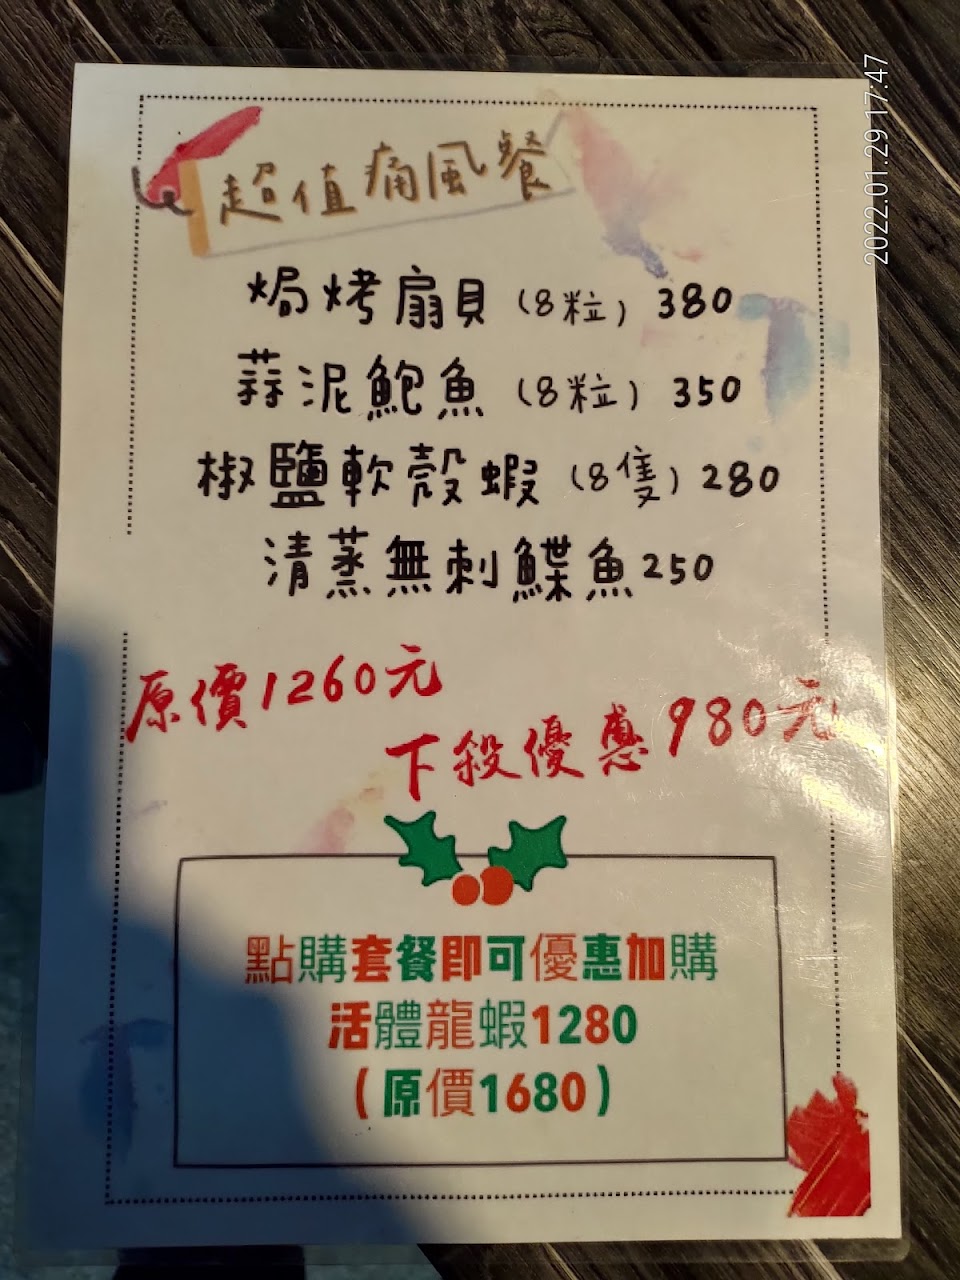 超值痛風餐
焗烤扇貝(8粒) 380
蒜泥鮑魚(8粒) 350
椒鹽軟殼蝦(8隻) 280
清蒸無刺鰈魚250
原價1260元
下殺優惠980元
點購套餐即可優惠加購
活體龍蝦1280
(原價1680)
2022.01.29 17:47